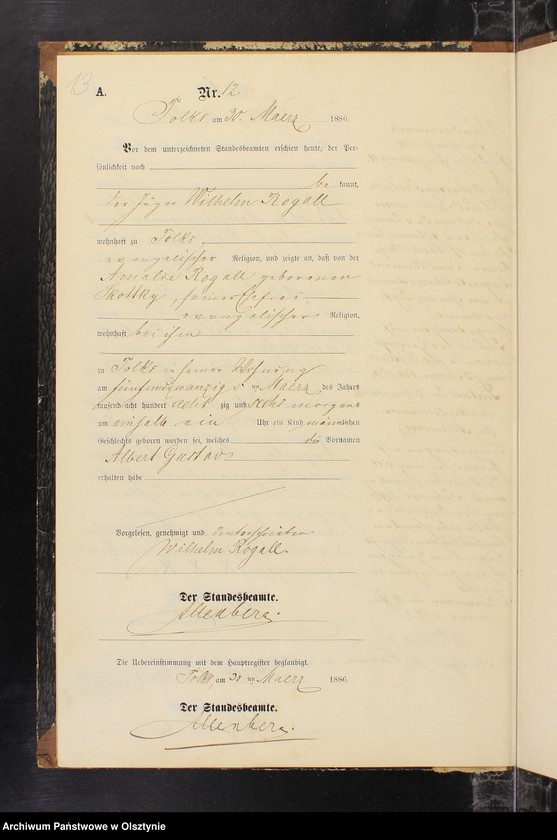 13
A. Nr. 12
Tolks am 30. Maerz 1886.
Vor dem unterzeichneten Standesbeamten erschien heute, der Per-
sönlichkeit nach
be kannt,
der Jäger Wilhelm Rogall
wohnhaft zu Tolks,
evangelischer Religion, und zeigte an, daß von der
Amalie Rogall geborenen
Skottky, seiner Ehefrau
evangelischer Religion,
wohnhaft bei ihm
zu Tolks in seiner Wohnung
am fünfundzwanzig ten Maerz des Jahres
tausend acht hundert acht zig und sechs morgens
um einhalb ein Uhr ein Kind männlichen
Geschlechts geboren worden sei, welches die Vornamen
Albert Gustav
erhalten habe
Vorgelesen, genehmigt und unterschrieben
Wilhelm Rogall.
Der Standesbeamte.
Die Uebereinstimmung mit dem Hauptregister beglaubigt.
Tolks am 30 ten Maerz 1886.
Der Standesbeamte.
Archiwum Państwowe w Olsztynie